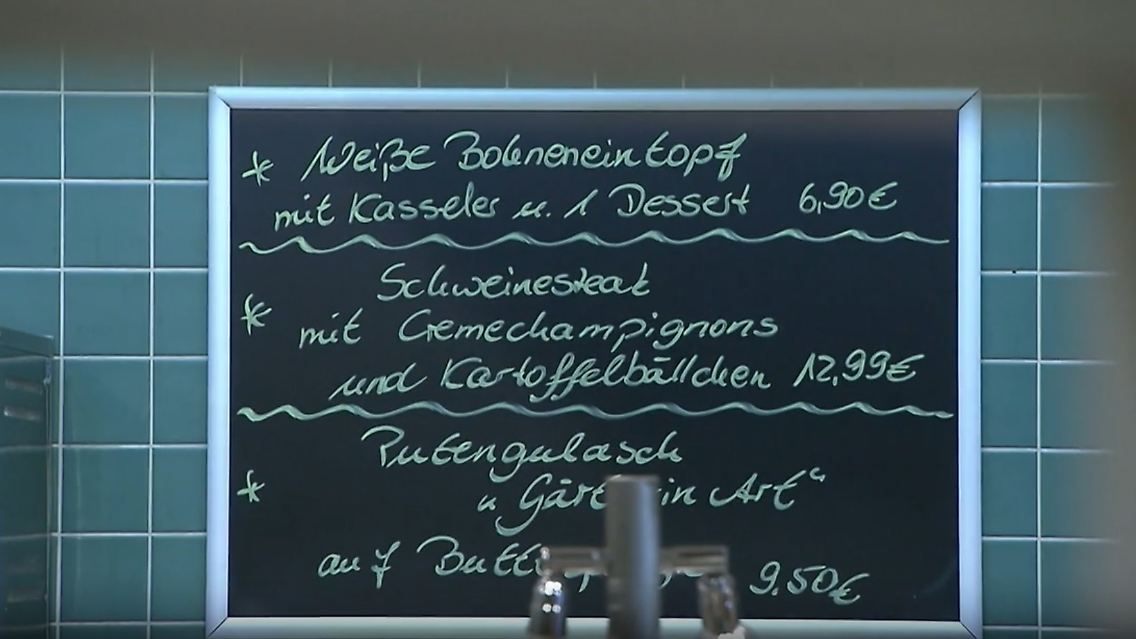 * Weiße Bohneneintopf
mit Kasseler u. 1 Dessert 6,90€
Schweinesteak
* mit Cremechampignons
und Kartoffelbällchen 12,99€
Putengulasch
* Art“
auf 9.50€